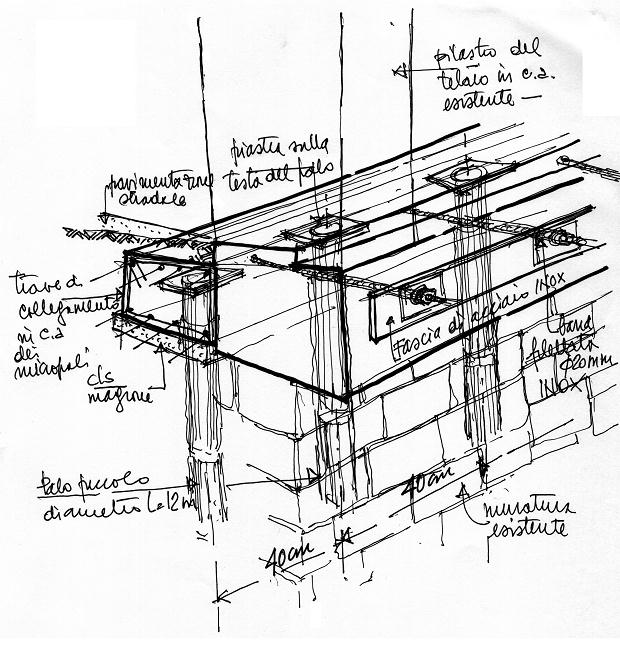 pilastro del
telaio in c.a.
esistente
piastra sulla
testa del palo
pavimentazione
stradale
trave di
collegamento
in c.a
dei
micropali
cls
magrone
Fascia di acciaio INOX
barra
filettata
Ø20mm
INOX
palo piccolo
diametro L=12m
40cm
40cm
muratura
esistente